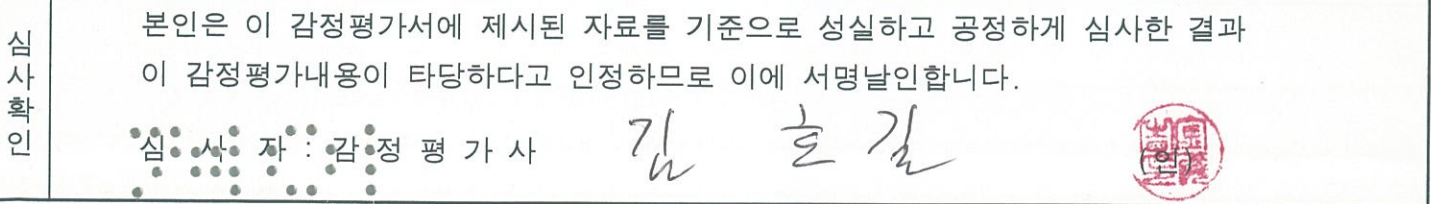 심사확인
본인은 이 감정평가서에 제시된 자료를 기준으로 성실하고 공정하게 심사한 결과
이 감정평가내용이 타당하다고 인정하므로 이에 서명날인합니다.
심 사 자 : 감 정 평 가 사 김 호 길 (인)